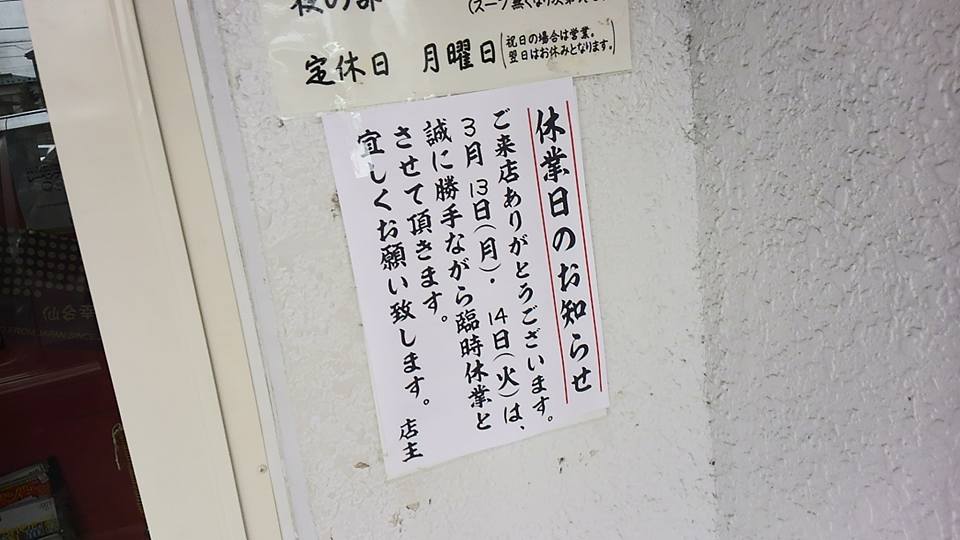 夜の部
(スープ無くなり次第
定休日 月曜日
(祝日の場合は営業。
翌日はお休みとなります。)
休業日のお知らせ
ご来店ありがとうございます。
3月13日(月)・14日(火)は、
誠に勝手ながら臨時休業と
させて頂きます。
宜しくお願い致します。 店主